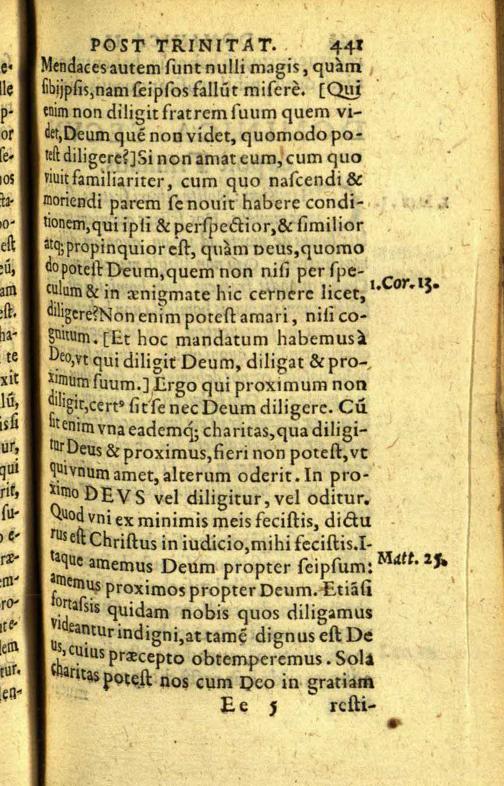 POST TRINITAT. 441
Mendaces autem ſunt nulli magis, quàm
ſibijpſis, nam ſeipſos fallūt miſerè. [Qui
enim non diligit fratrem ſuum quem vi-
det, Deum quē non videt, quomodo po-
teſt diligere?] Si non amat eum, cum quo
viuit familiariter, cum quo naſcendi &
moriendi parem ſe nouit habere condi-
tionem, qui ipſi & perſpectior, & ſimilior
atq; propinquior eſt, quàm Deus, quomo
do poteſt Deum, quem non niſi per ſpe-
culum & in ænigmate hic cernere licet,
1. Cor. 13.
diligere? Non enim poteſt amari, niſi co-
gnitum. [Et hoc mandatum habemus à
Deo, vt qui diligit Deum, diligat & pro-
ximum ſuum.] Ergo qui proximum non
diligit, certꝰ ſit ſe nec Deum diligere. Cū
ſit enim vna eademq; charitas, qua diligi-
tur Deus & proximus, fieri non poteſt, vt
qui vnum amet, alterum oderit. In pro-
ximo DEVS vel diligitur, vel oditur.
Quod vni ex minimis meis feciſtis, dictu
rus eſt Chriſtus in iudicio, mihi feciſtis. I-
taque amemus Deum propter ſeipſum:
Matt. 25.
amemus proximos propter Deum. Etiāſi
fortaſſis quidam nobis quos diligamus
videantur indigni, at tamē dignus eſt De
us, cuius præcepto obtemperemus. Sola
charitas poteſt nos cum Deo in gratiam
Ee 5 reſti-